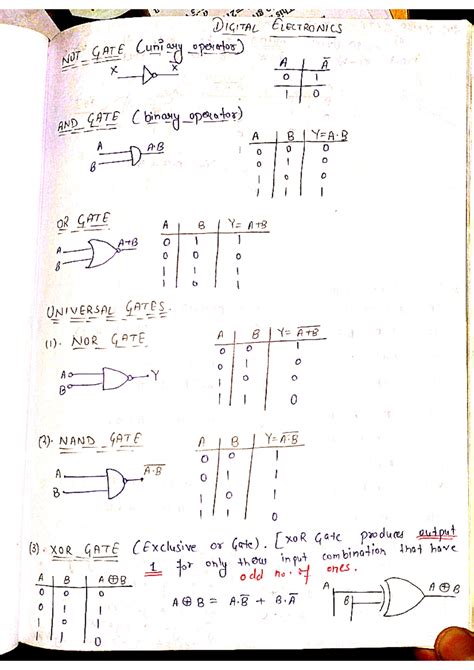 DIGITAL ELECTRONICS
NOT GATE (uniary operator)
X X̅
A | A̅
0 | 1
1 | 0
AND GATE (binary operator)
A B A·B
A | B | Y=A·B
0 | 0 | 0
0 | 1 | 0
1 | 0 | 0
1 | 1 | 1
OR GATE
A B A+B
A | B | Y= A+B
0 | 1 | 1
0 | 0 | 0
1 | 1
1 | 1
UNIVERSAL GATES.
(1). NOR GATE
A B Y
A | B | Y= A̅+̅B̅
0 | 0 | 1
0 | 1 | 0
1 | 0 | 0
1 | 1 | 0
(2). NAND GATE
A B A̅·̅B̅
A | B | Y=A̅·̅B̅
0 | 0 | 1
0 | 1 | 1
1 | 0 | 1
1 | 1 | 0
(3). XOR GATE (Exclusive or Gate). [XOR Gate produces output
1 for only those input combination that have
odd no. of ones.
A | B | A⊕B
0 | 0 | 0
0 | 1 | 1
1 | 0 | 1
1 | 1 | 0
A⊕B = A·B̅ + B·A̅
A B A⊕B